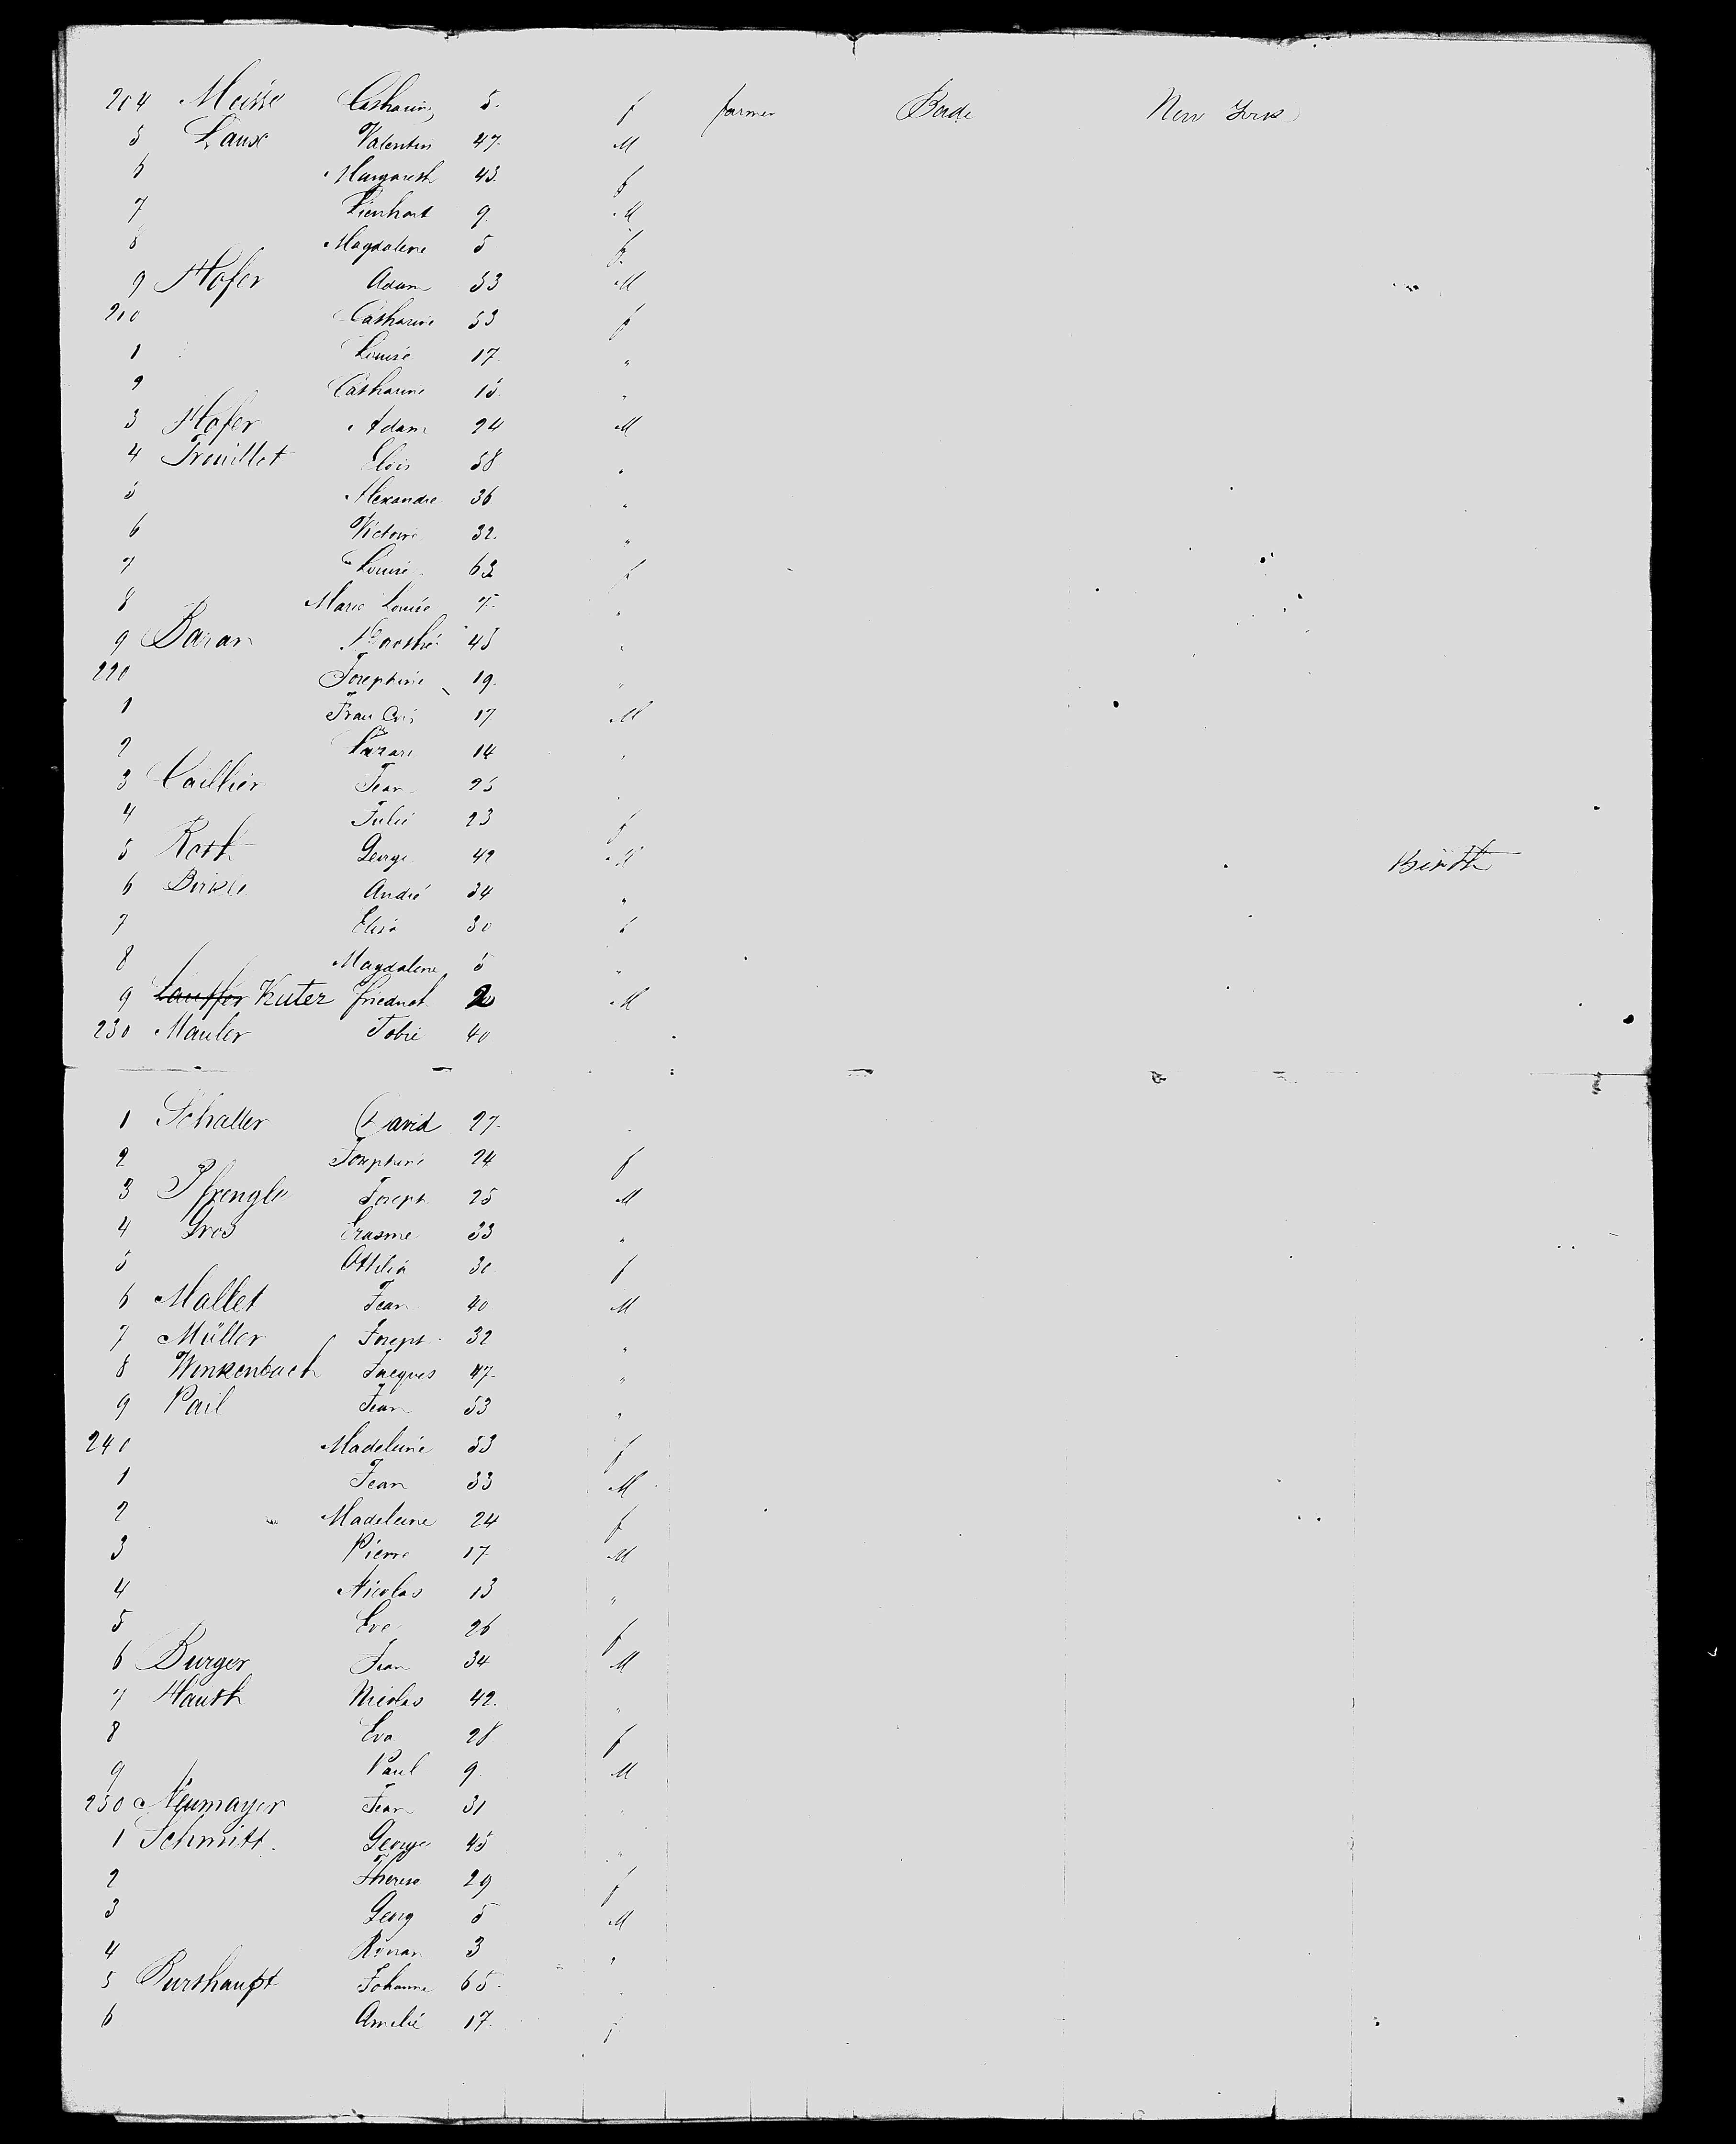 204 Meisse Catharine 5. f farmer Bade New York
5 Laux Valentin 47. M
6 Margareth 43. f
7 Lienhart 9. M
8 Magdalene 5 f
9 Hofer Adam 53 M
210 Catharine 53 f
1 Louise 17 "
2 Catharine 15. "
3 Hofer Adam 24 M
4 Trouillet Elois 58 "
5 Alexandre 36 "
6 Victoire 32. "
7 Louise 63 f
8 Marie Louise 7. "
9 Baran 45 "
220 Josephine 19. "
1 Francois 17 M
2 Lazare 14 "
3 Caillier Jean 25 "
4 Julie 23 f
5 Roth George 42 M Birth
6 Birkle André 34 "
7 Elisa 30 f
8 Magdalene 5 "
9 Lauffer Kuter friedrich 2 M
230 Mauler Tobie 40
1 Schaller David 27.
2 Josephine 24 f
3 Pfrengle Joseph 25 M
4 Gros Erasme 33 "
5 Ottilia 30 f
6 Mallet Jean 40 M
7 Müller Joseph 32 "
8 Winkenbach Jacques 47. "
9 Pail Jean 53 "
240 Madeleine 53 f
1 Jean 33 M
2 Madeleine 24 f
3 Pierre 17 M
4 Nicolas 13 "
5 Eve 26 f
6 Burger Jean 34 M
7 Hauth Nicolas 42. "
8 Eva 28 f
9 Paul 9. M
250 Neumayer Jean 31 "
1 Schmitt George 45 "
2 Therese 29 f
3 Georg 5 M
4 Ronan 3 "
5 Burshaupt Johanne 65. "
6 Amelie 17. f